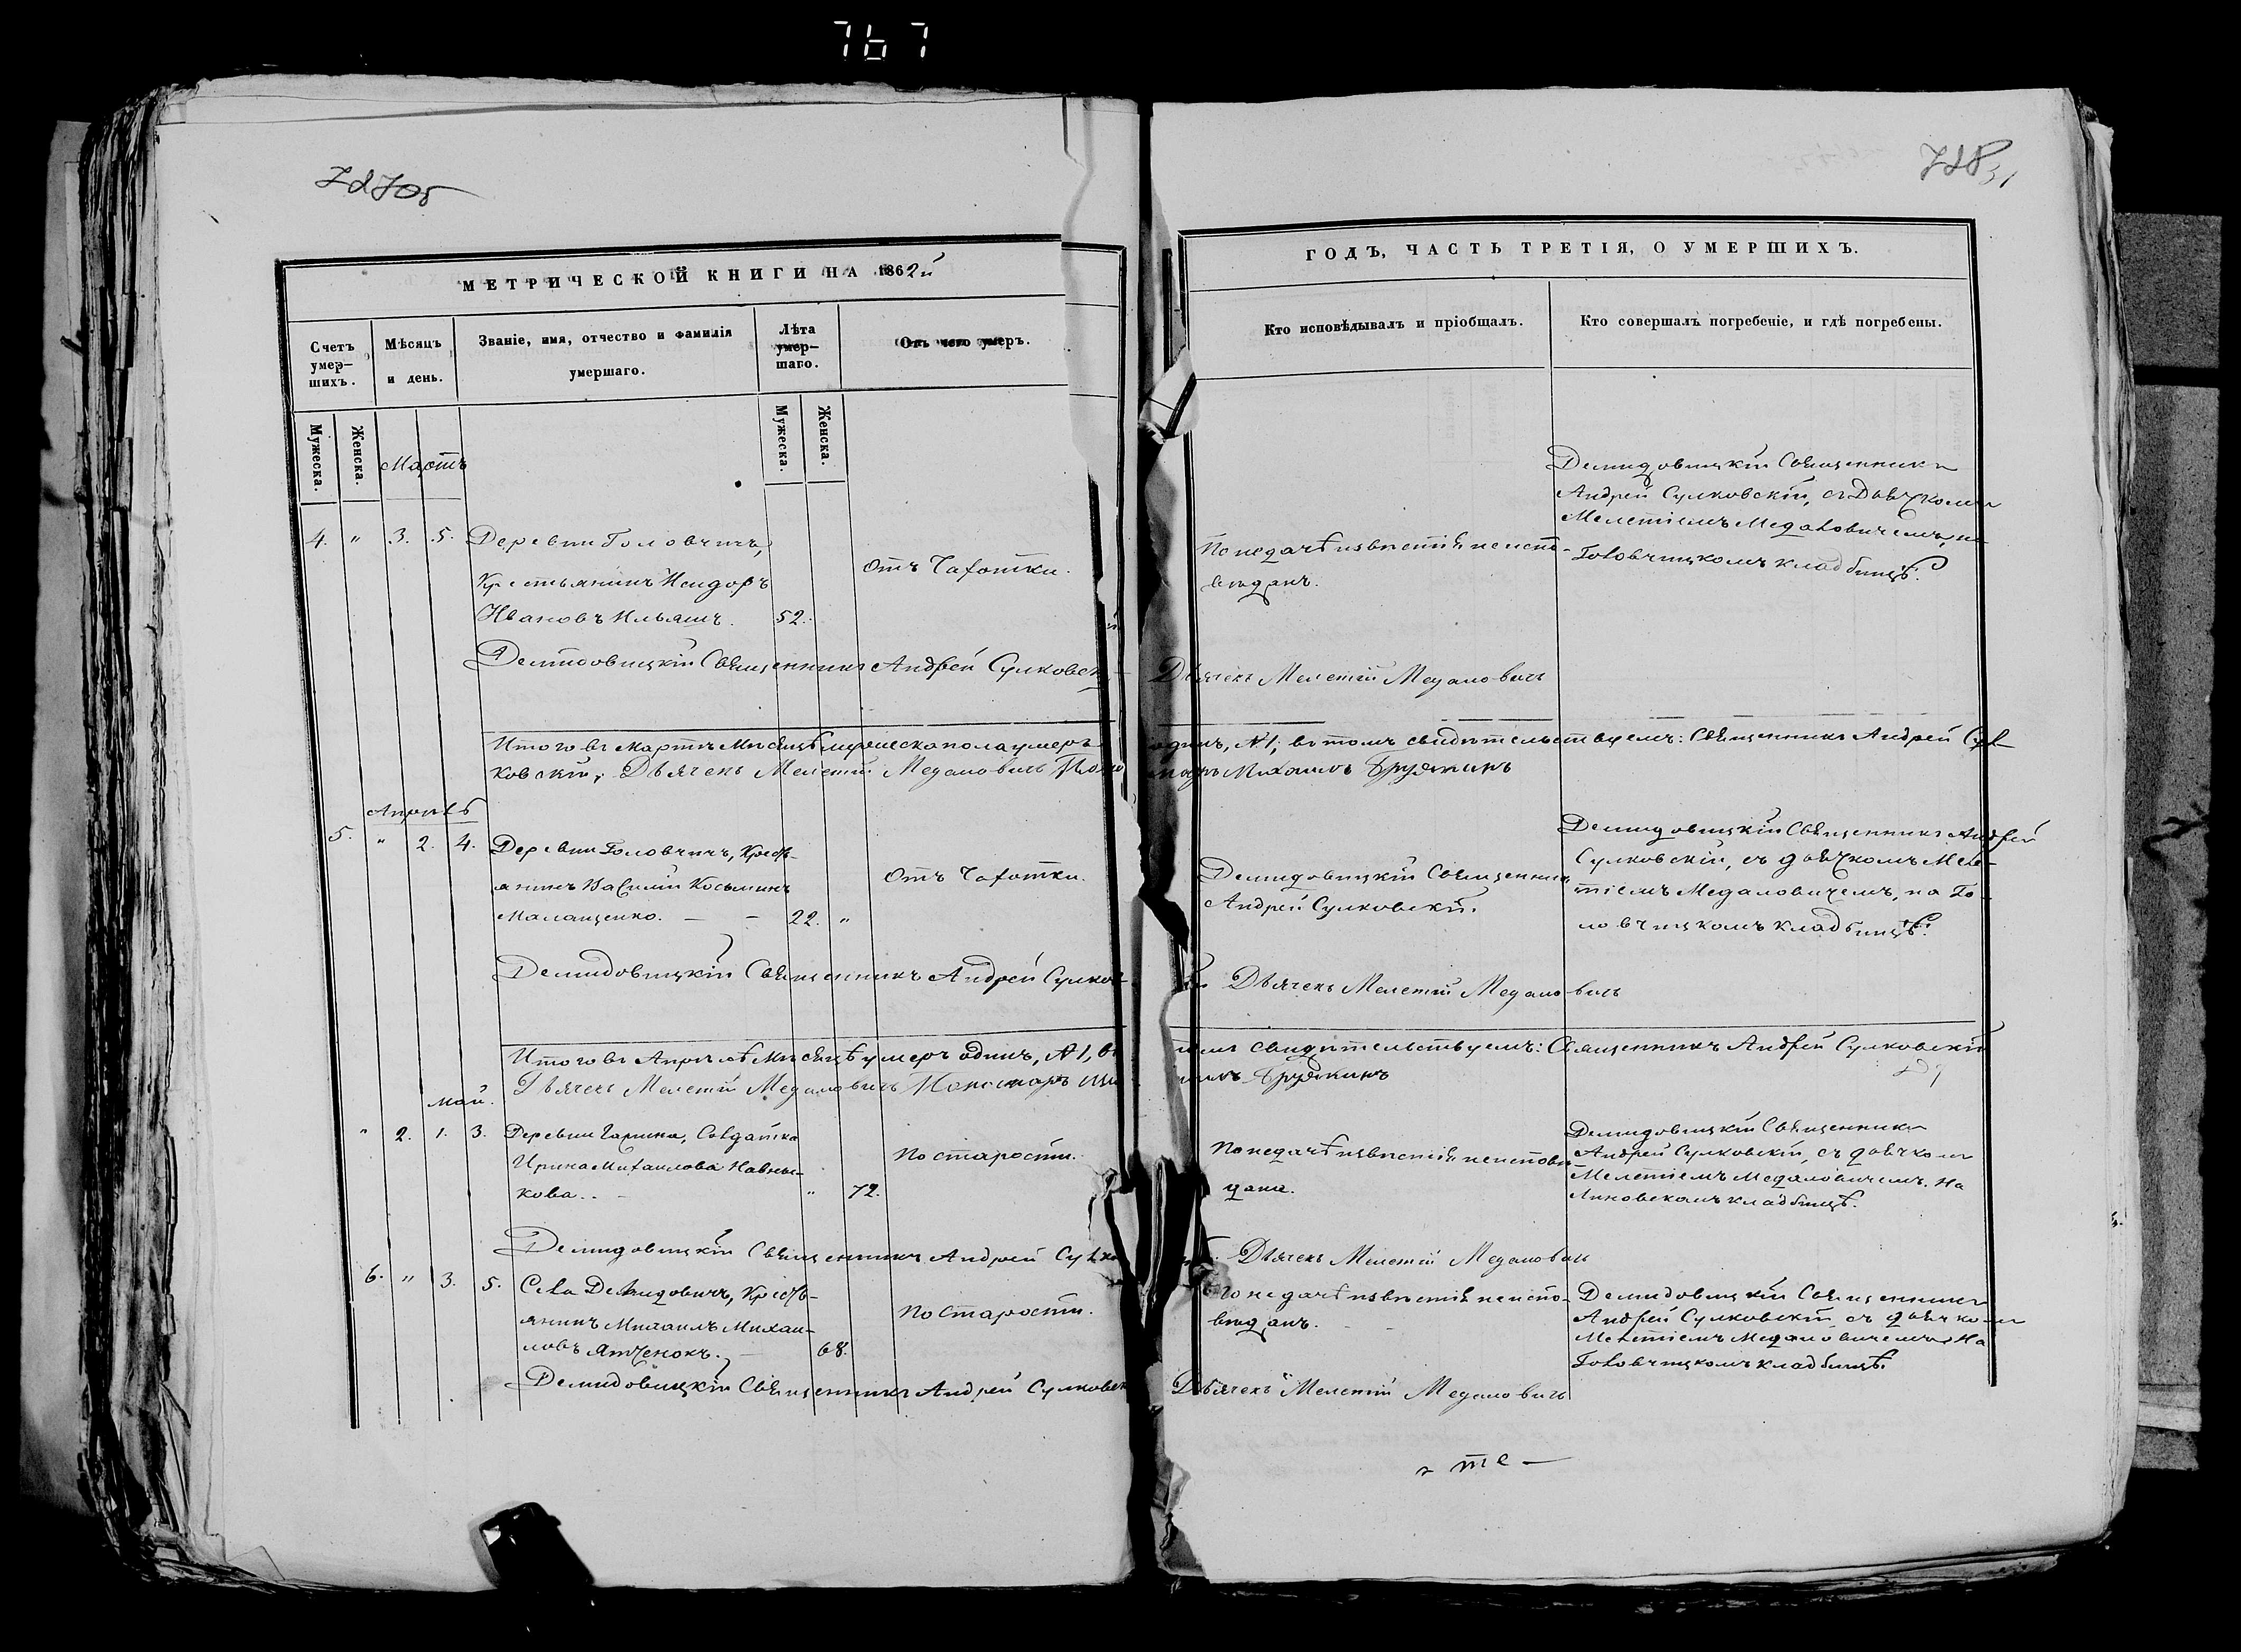 767
728
МЕТРИЧЕСКОЙ КНИГИ НА 1862й
ГОДЪ, ЧАСТЬ ТРЕТІЯ, О УМЕРШИХЪ.
Счетъ умер-
шихъ.
Мѣсяцъ
и день.
Званіе, имя, отчество и фамилія
умершаго.
Лѣта
умер-
шаго.
Отъ чего умеръ.
Кто исповѣдывалъ и пріобщалъ.
Кто совершалъ погребеніе, и гдѣ погребены.
Мужеска.
Женска.
Мужеска.
Женска.
Мартъ
4. " 3. 5.
Деревни Головчичъ,
Крестьянинъ Исидоръ
Ивановъ Ильяшъ. 52.
Отъ Чахотки.
По недачѣ извѣстія неиспо-
вѣданъ.
Демидовицкій Священникъ
Андрей Сулковскій, съ Дьячкомъ
Мелетіемъ Медаловичемъ, на
Головчицкомъ кладбищѣ.
Демидовицкій Священникъ Андрей Сулковскі
Дьячекъ Мелетій Медаловичъ
Итого въ мартѣ мѣсяцѣ мужеска пола умеръ одинъ, №1; въ томъ свидѣтельствуемъ: Священникъ Андрей Сул-
ковскій; Дьячекъ Мелетій Медаловичъ Пономарь Михаилъ
Апрѣль
5. " 2. 4.
Деревни Головчичъ, Кресть-
янинъ Василій Косьминъ
Малащенко. — — 22. "
Отъ Чахотки.
Демидовицкій Священникъ
Андрей Сулковскій.
Демидовицкій Священникъ Андрей
Сулковскій, съ дьячкомъ Меле-
тіемъ Медаловичемъ, на Го-
ловчицкомъ кладбищѣ.
Демидовицкій Священникъ Андрей Сулков
Дьячекъ Мелетій Медаловичъ
Итого въ Апрѣлѣ мѣсяцѣ умеръ одинъ, №1, въ томъ свидѣтельствуемъ: Священникъ Андрей Сулковскій
Дьячекъ Мелетій Медаловичъ Пономарь
Май.
" 2. 1. 3.
Деревни Солдатка
Ирина Михайлова
кова. " 72.
По старости.
По недачѣ извѣстія неисповѣ-
дана.
Демидовицкій Священникъ
Андрей Сулковскій, съ дьячкомъ
Мелетіемъ Медаловичемъ. На
кладбищѣ.
Демидовицкій Священникъ Андрей Сулко
Дьячекъ Мелетій Медаловичъ
6. " 3. 5.
Села Демидовичъ, Кресть-
янинъ Михаилъ Михаи-
ловъ Ятченокъ. 68.
По Старости.
По недачѣ извѣстія неиспо-
вѣданъ.
Демидовицкій Священникъ
Андрей Сулковскій съ дьячкомъ
Мелетіемъ Медаловичемъ На
Головчицкомъ кладбищѣ.
Демидовицкій Священникъ Андрей Сулковск
Дьячекъ Мелетій Медаловичъ